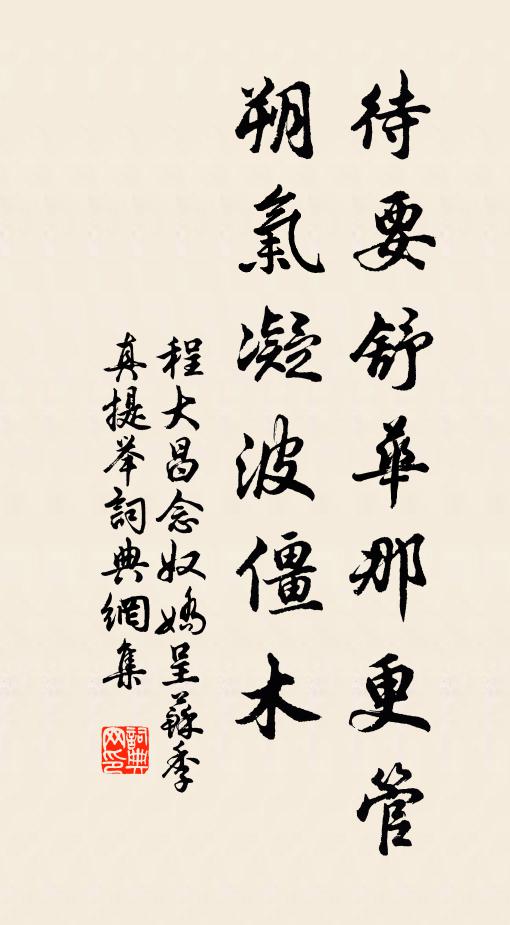 待要舒華那更管
朔氣凝波僵木
程大昌念奴嬌呈蘇季
真提举詞典網集
詞典网印